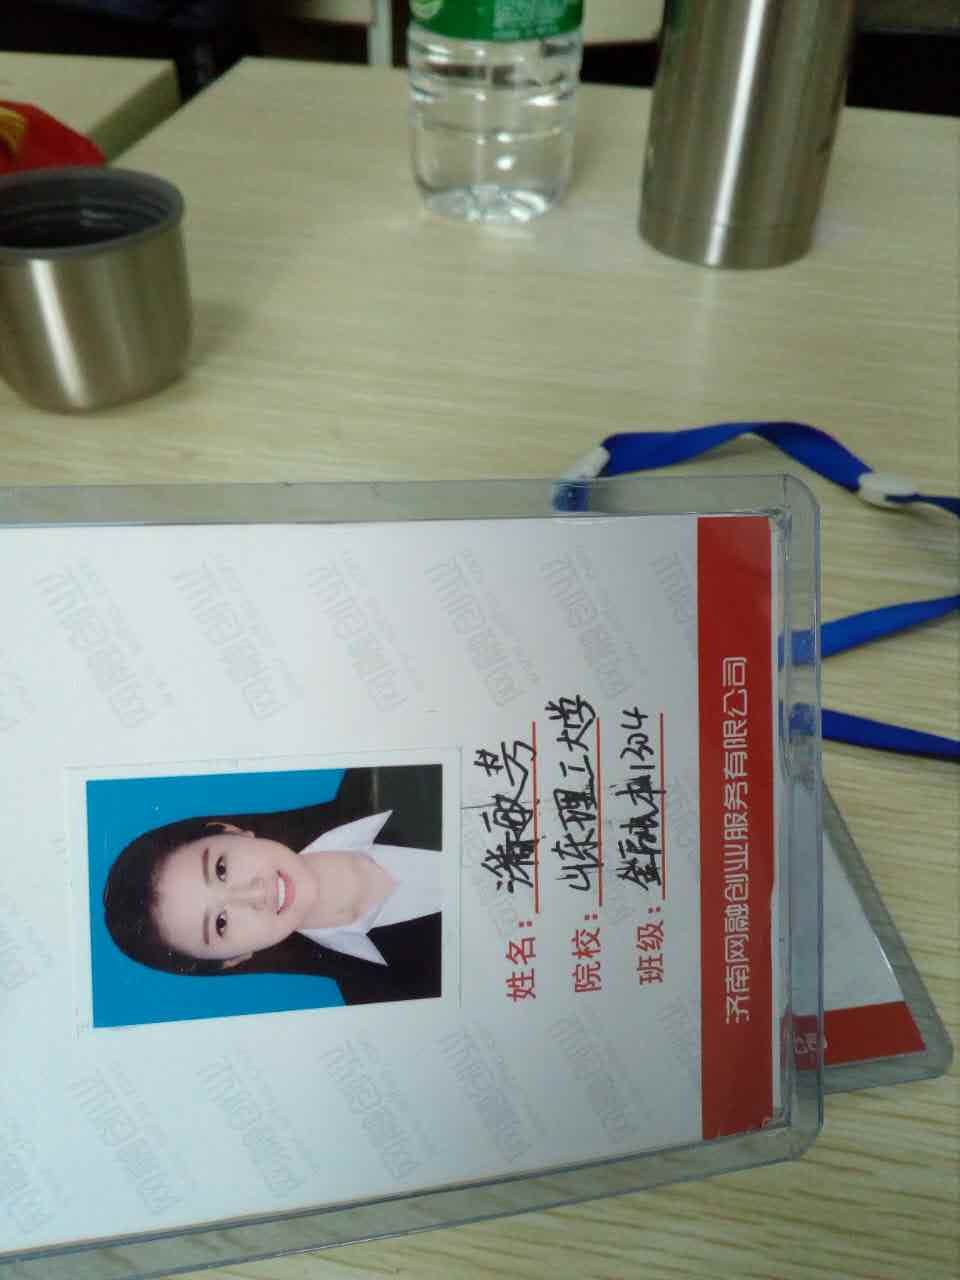 姓名：潘敏芳
院校：山东理工大学
班级：金融本1304
济南网融创业服务有限公司